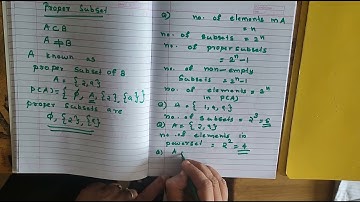 Proper Subset
A ⊂ B
A ≠ B
A known as
proper subset of B
A = { 2, 9}
P(A) = { ϕ, A, {2}, {9}}
proper subsets are
ϕ, {2}, {9}
Q) no. of elements in A
= n
no. of subsets = 2ⁿ
no. of proper subsets
= 2ⁿ-1
no. of non-empty
subsets = 2ⁿ-1
no. of elements = 2ⁿ
in P(A)
Q) A = { 1, 9, 9}
no. of subsets = 2³ = 8
Q) A = { 2, 9}
no. of elements in
powerset = 2² = 4
Q) A